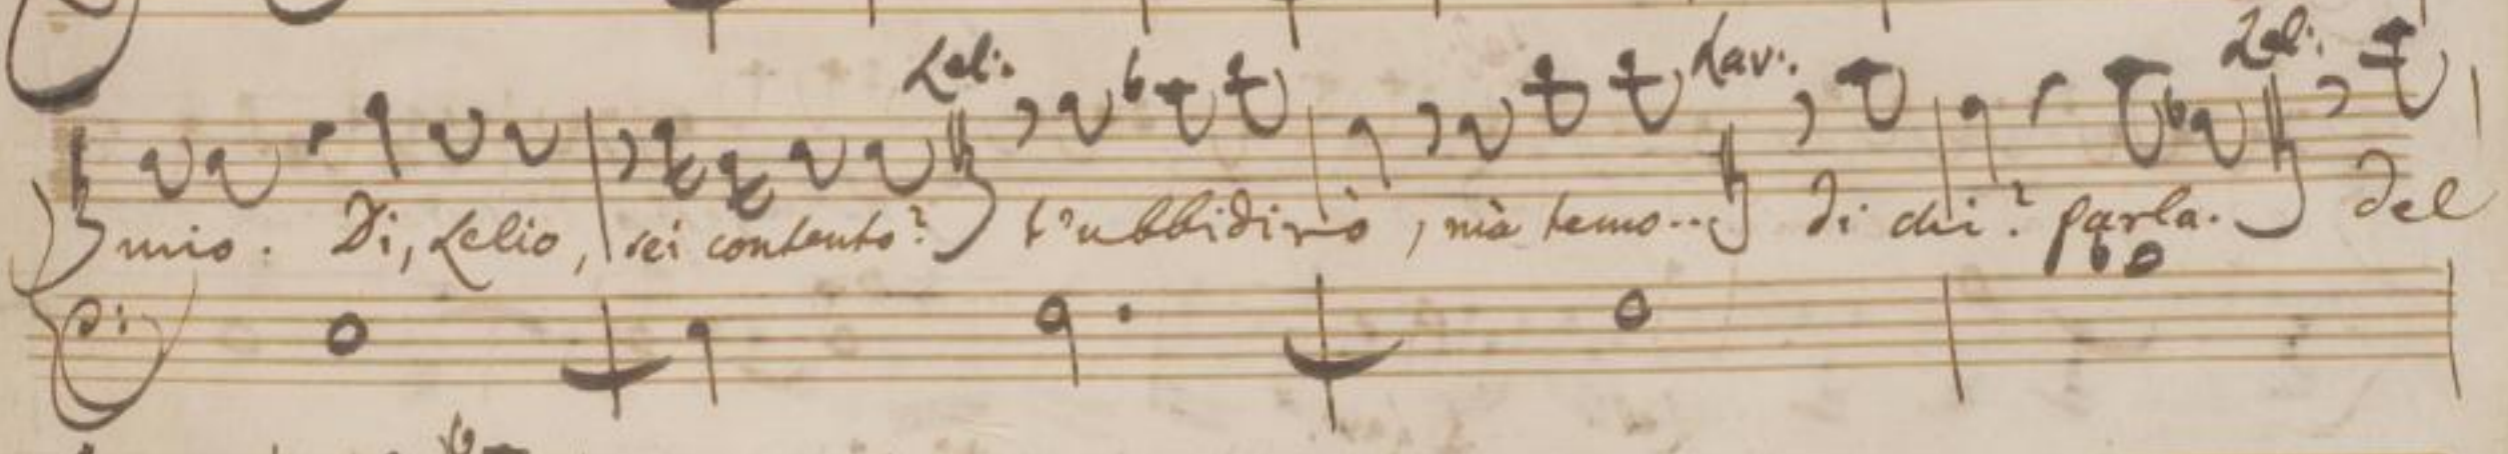 Lel: Lav: Lel:
mio. Di, Lelio, sei contento? t'ubbidirò, mà temo... di chi? parla. Del